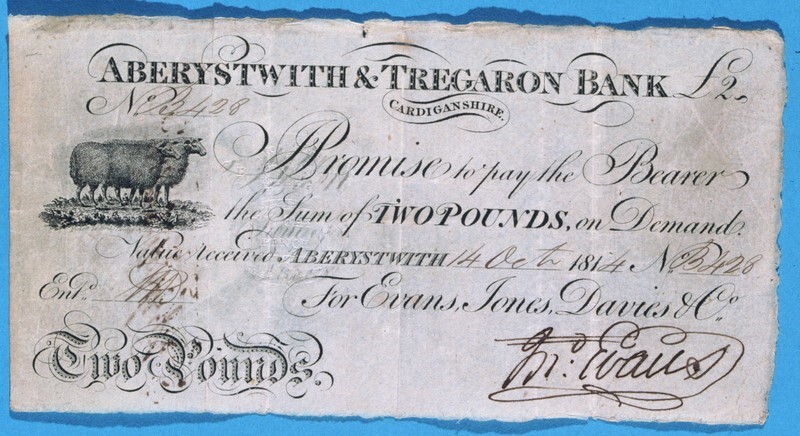 ABERYSTWITH & TREGARON BANK £2.
CARDIGANSHIRE.
No. B428
I Promise to pay the Bearer
the Sum of TWO POUNDS, on Demand.
Value received ABERYSTWITH 14 Oct 1814 No B428
Entd.
For Evans, Jones, Davies & Co.
Two Pounds.
Jno. Evans